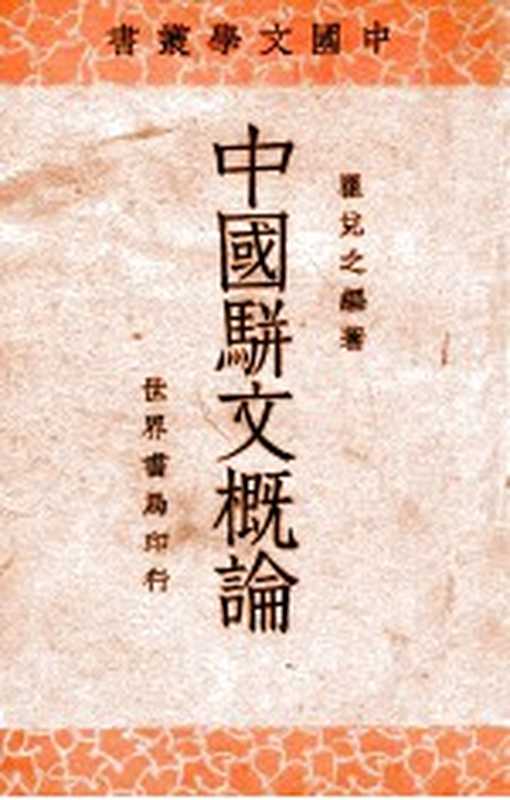 中國文學叢書
瞿兌之編著
中國駢文概論
世界書局印行